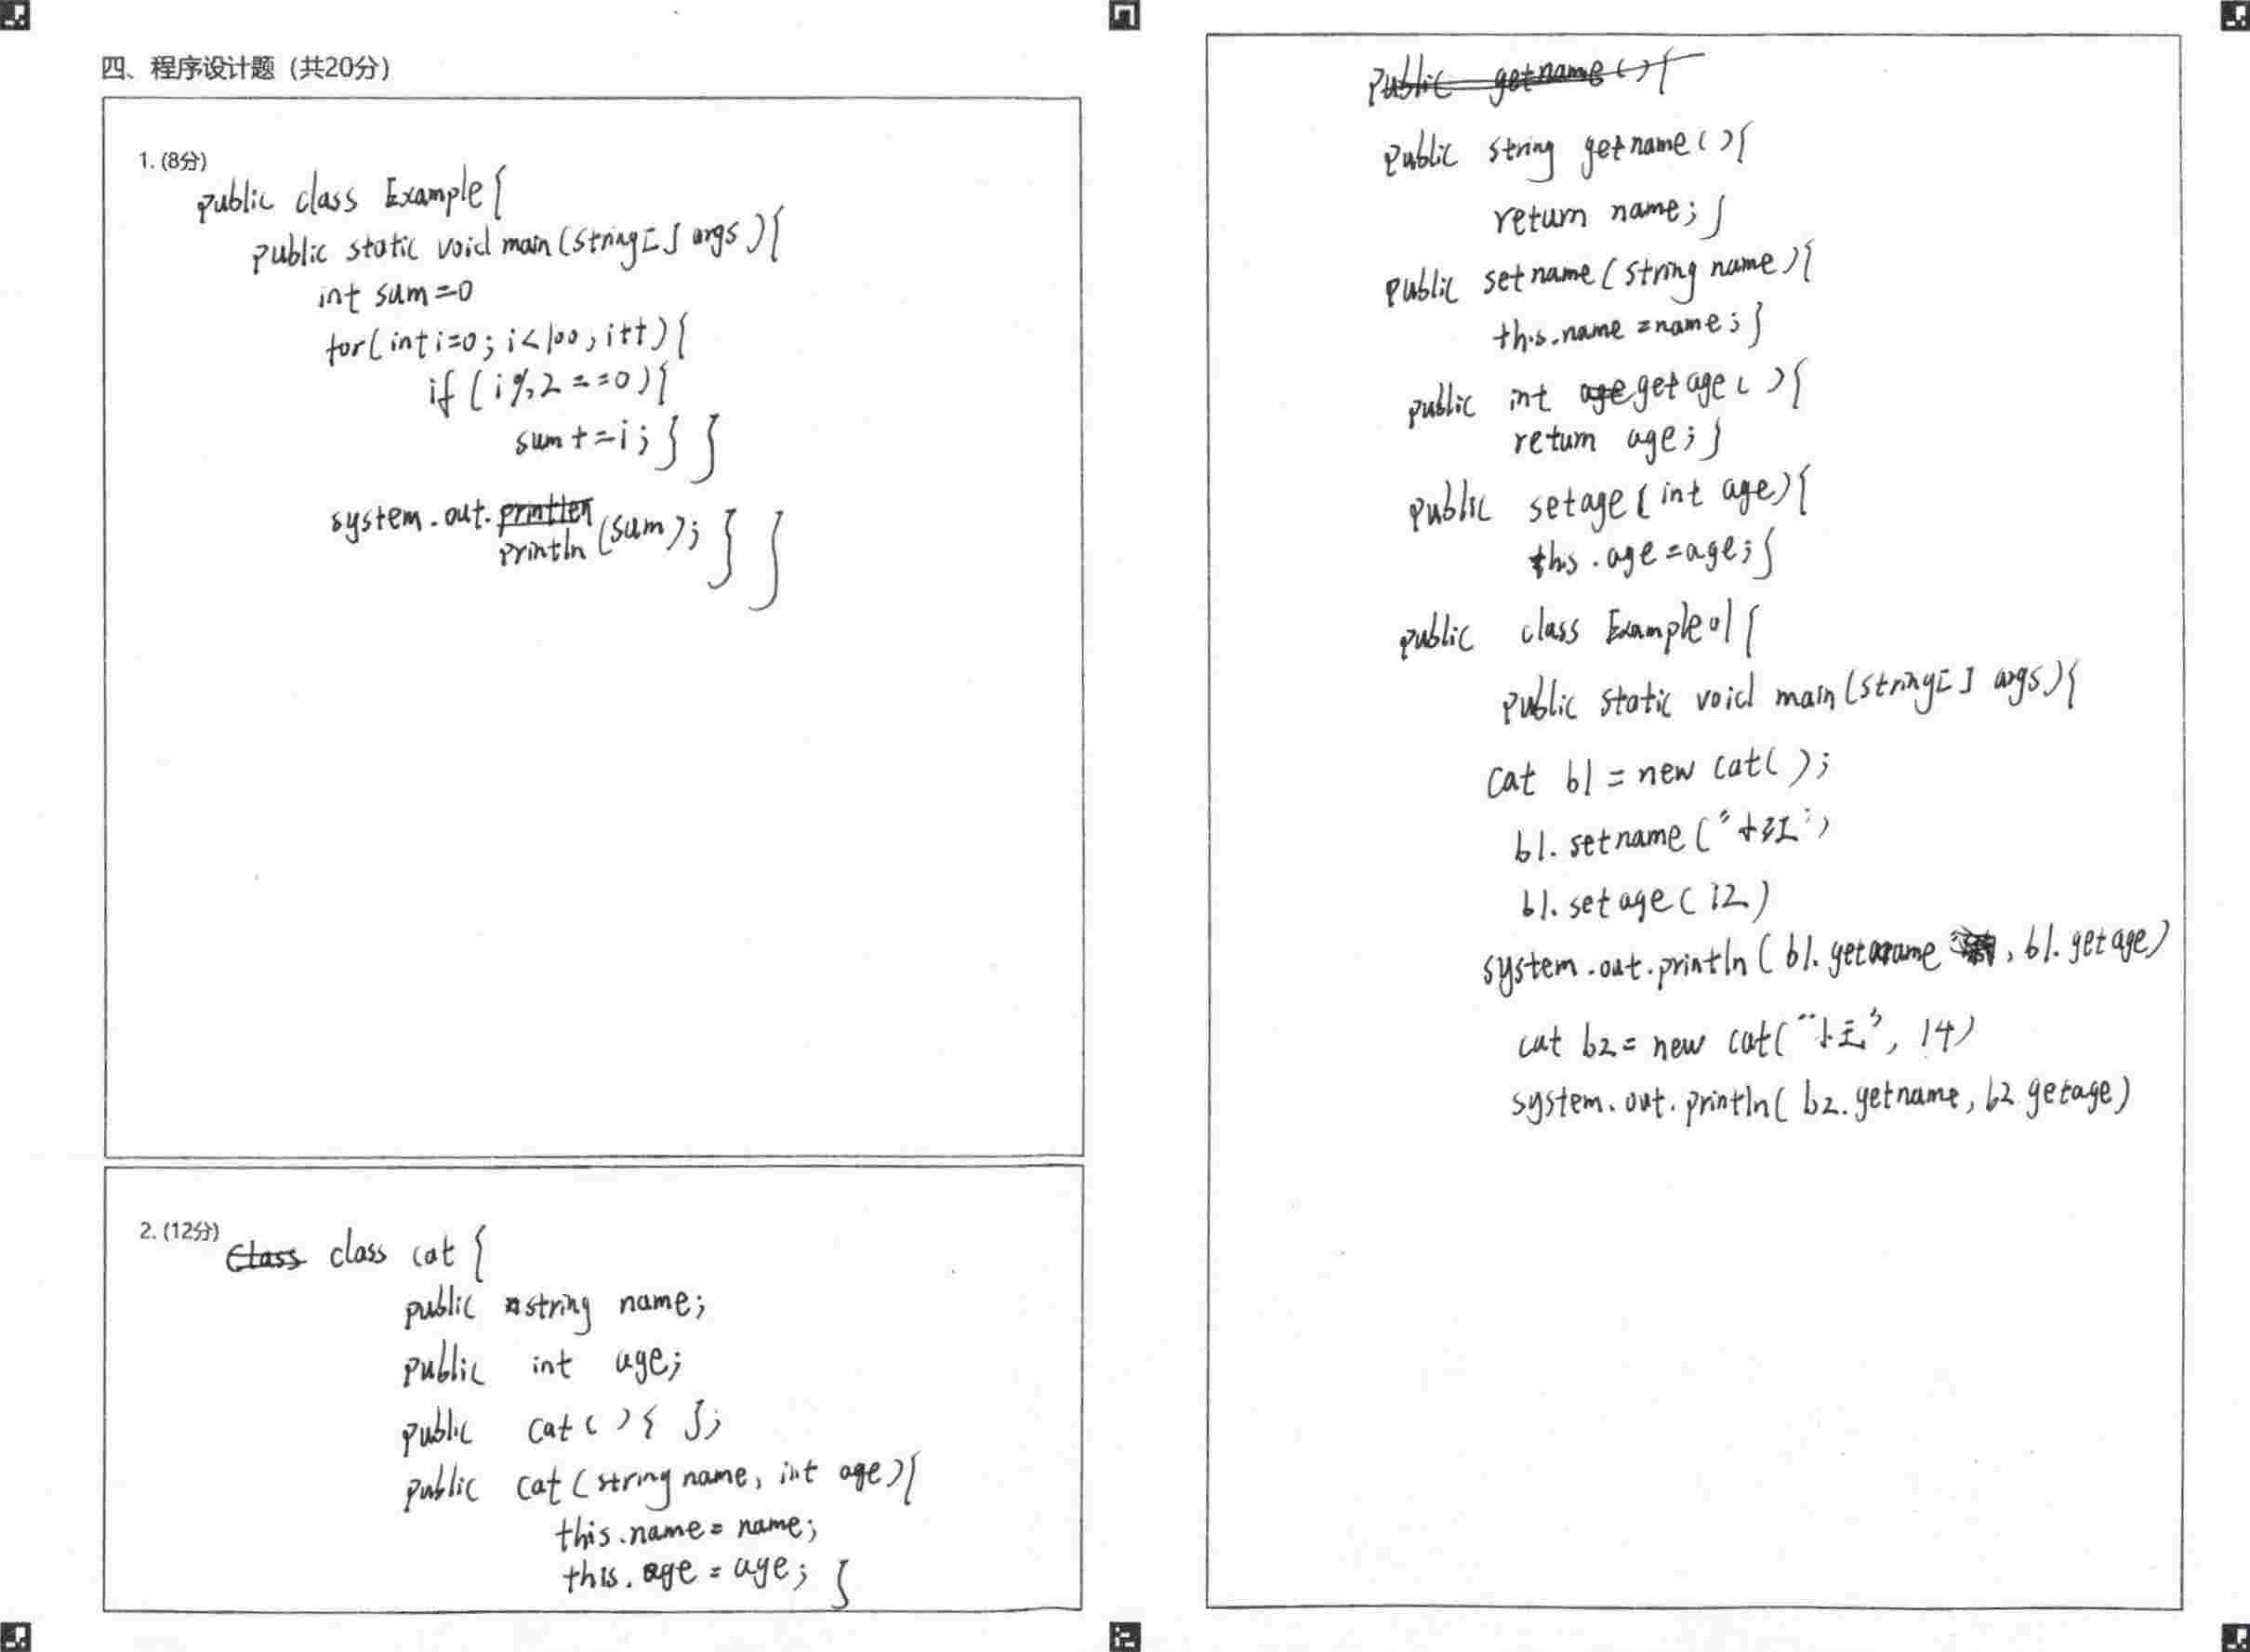 四、程序设计题（共20分）
1. (8分)
public class Example{
public static void main(string[] args){
int sum=0
for(int i=0; i<100, i++){
if(i%2==0){
sum+=i;}}
system.out.println(sum);}}
2. (12分)
class cat{
public string name;
public int age;
public cat(){};
public cat(string name, int age){
this.name=name;
this.age=age;}
public getname(){
public string getname(){
return name;}
public setname(string name){
this.name=name;}
public int getage(){
return age;}
public setage(int age){
this.age=age;}
public class Example01{
public static void main(string[] args){
cat b1=new cat();
b1.setname("小红")
b1.setage(12)
system.out.println(b1.getname, b1.getage)
cat b2=new cat("小王", 14)
system.out.println(b2.getname, b2.getage)